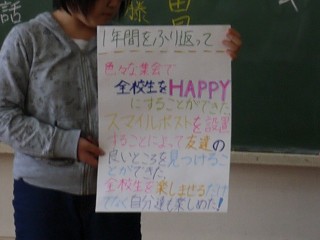 話
藤
1年間をふり返って
色々な集会で
全校生をHAPPY
にすることができた。
スマイルポストを設置
することによって友達の
良いところを見つけるこ
とができた。
全校生を楽しませるだけ
でなく自分達も楽しめた!